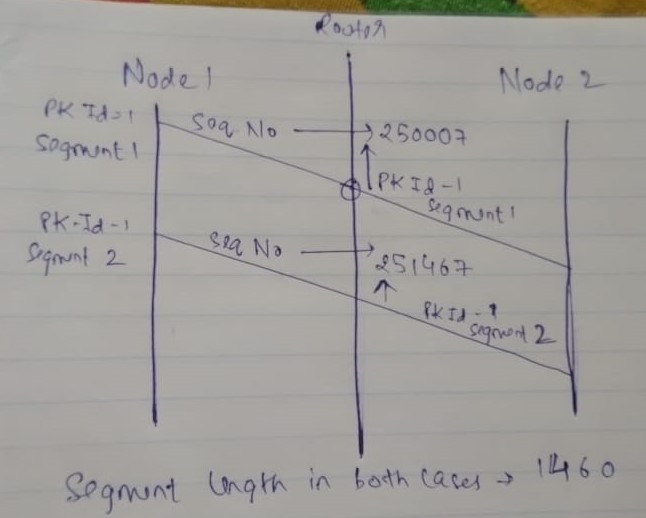 Router
Node 1
Node 2
PK Id=1
Segment 1
Seq. No → 250007
PK Id-1
Segment 1
PK-Id-1
Segment 2
Seq No → 251467
PK Id-1
Segment 2
Segment length in both cases → 1460